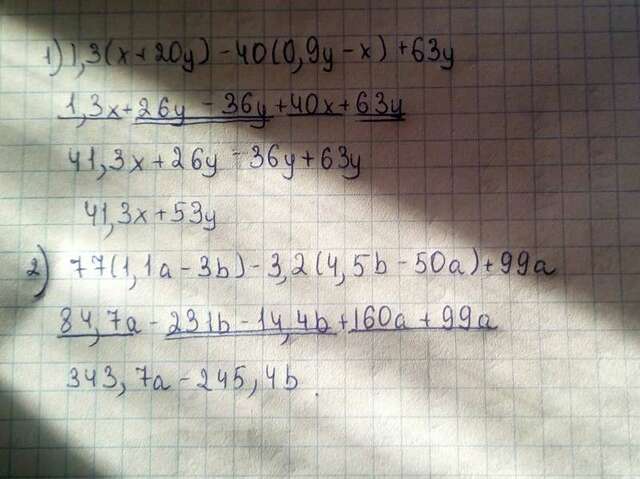 1) 1,3(x+20y) - 40(0,9y - x) + 63y
1,3x + 26y - 36y + 40x + 63y
41,3x + 26y - 36y + 63y
41,3x + 53y
2) 77(1,1a - 3b) - 3,2(4,5b - 50a) + 99a
84,7a - 231b - 14,4b + 160a + 99a
343,7a - 245,4b